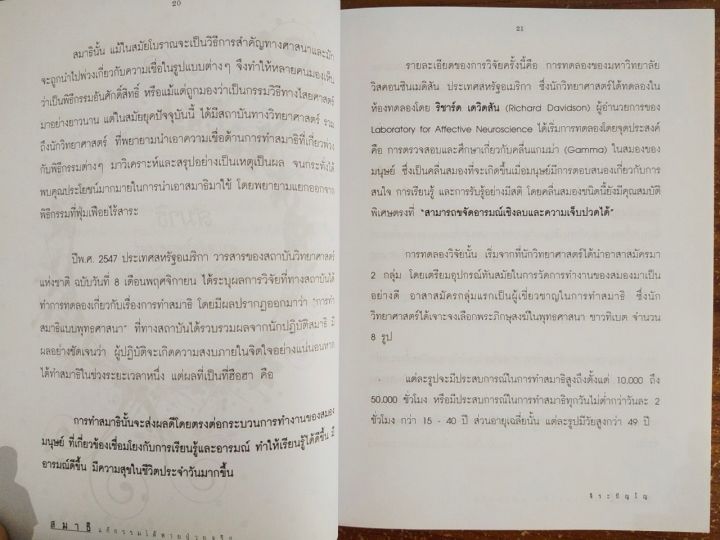 20
สมาธินั้น แม้ในสมัยโบราณจะเป็นวิธีการสำคัญทางศาสนาและมัก
จะถูกนำไปพ่วงเกี่ยวกับความเชื่อในรูปแบบต่างๆ จึงทำให้หลายคนมองเห็น
ว่าเป็นพิธีกรรมอันศักดิ์สิทธิ์ หรือแม้แต่ถูกมองว่าเป็นกรรมวิธีทางไสยศาสตร์
มาอย่างยาวนาน แต่ในสมัยยุคปัจจุบันนี้ ได้มีสถาบันทางวิทยาศาสตร์ รวม
ถึงนักวิทยาศาสตร์ ที่พยายามนำเอาความเชื่อด้านการทำสมาธิที่เกี่ยวพ่วง
กับพิธีกรรมต่างๆ มาวิเคราะห์และสรุปอย่างเป็นเหตุเป็นผล จนกระทั่งได้
พบคุณประโยชน์มากมายในการนำเอาสมาธิมาใช้ โดยพยายามแยกออกจาก
พิธีกรรมที่ฟุ่มเฟือยไร้สาระ
ปีพ.ศ. 2547 ประเทศสหรัฐอเมริกา วารสารของสถาบันวิทยาศาสตร์
แห่งชาติ ฉบับวันที่ 8 เดือนพฤศจิกายน ได้ระบุผลการวิจัยที่ทางสถาบันได้
ทำการทดลองเกี่ยวกับเรื่องการทำสมาธิ โดยมีผลปรากฏออกมาว่า "การทำ
สมาธิแบบพุทธศาสนา" ที่ทางสถาบันได้รวบรวมผลจากนักปฏิบัติสมาธิ มี
ผลอย่างชัดเจนว่า ผู้ปฏิบัติจะเกิดความสงบภายในจิตใจอย่างแน่นอนหาก
ได้ทำสมาธิในช่วงระยะเวลาหนึ่ง แต่ผลที่เป็นที่ฮือฮา คือ
การทำสมาธินั้นจะส่งผลดีโดยตรงต่อกระบวนการทำงานของสมอง
มนุษย์ ที่เกี่ยวข้องเชื่อมโยงกับการเรียนรู้และอารมณ์ ทำให้เรียนรู้ได้ดีขึ้น มี
อารมณ์ดีขึ้น มีความสุขในชีวิตประจำวันมากขึ้น
สมาธิ
21
รายละเอียดของการวิจัยครั้งนี้คือ การทดลองของมหาวิทยาลัย
วิสคอนซินเมดิสัน ประเทศสหรัฐอเมริกา ซึ่งนักวิทยาศาสตร์ได้ทดลองใน
ห้องทดลองโดย ริชาร์ด เดวิดสัน (Richard Davidson) ผู้อำนวยการของ
Laboratory for Affective Neuroscience ได้เริ่มการทดลองโดยจุดประสงค์
คือ การตรวจสอบและศึกษาเกี่ยวกับคลื่นแกมม่า (Gamma) ในสมองของ
มนุษย์ ซึ่งเป็นคลื่นสมองที่จะเกิดขึ้นเมื่อมนุษย์มีการตอบสนองเกี่ยวกับการ
สนใจ การเรียนรู้ และการรับรู้อย่างมีสติ โดยคลื่นสมองชนิดนี้ยังมีคุณสมบัติ
พิเศษตรงที่ "สามารถขจัดอารมณ์เชิงลบและความเจ็บปวดได้"
การทดลองวิจัยนั้น เริ่มจากที่นักวิทยาศาสตร์ได้นำอาสาสมัครมา
2 กลุ่ม โดยเตรียมอุปกรณ์ทันสมัยในการวัดการทำงานของสมองมาเป็น
อย่างดี อาสาสมัครกลุ่มแรกเป็นผู้เชี่ยวชาญในการทำสมาธิ ซึ่งนัก
วิทยาศาสตร์ได้เจาะจงเลือกพระภิกษุสงฆ์ในพุทธศาสนา ชาวทิเบต จำนวน
8 รูป
แต่ละรูปจะมีประสบการณ์ในการทำสมาธิสูงถึงตั้งแต่ 10,000 ถึง
50,000 ชั่วโมง หรือมีประสบการณ์ในการทำสมาธิทุกวันไม่ต่ำกว่าวันละ 2
ชั่วโมง กว่า 15 - 40 ปี ส่วนอายุเฉลี่ยนั้น แต่ละรูปมีวัยสูงกว่า 49 ปี
จิระปัญโญ